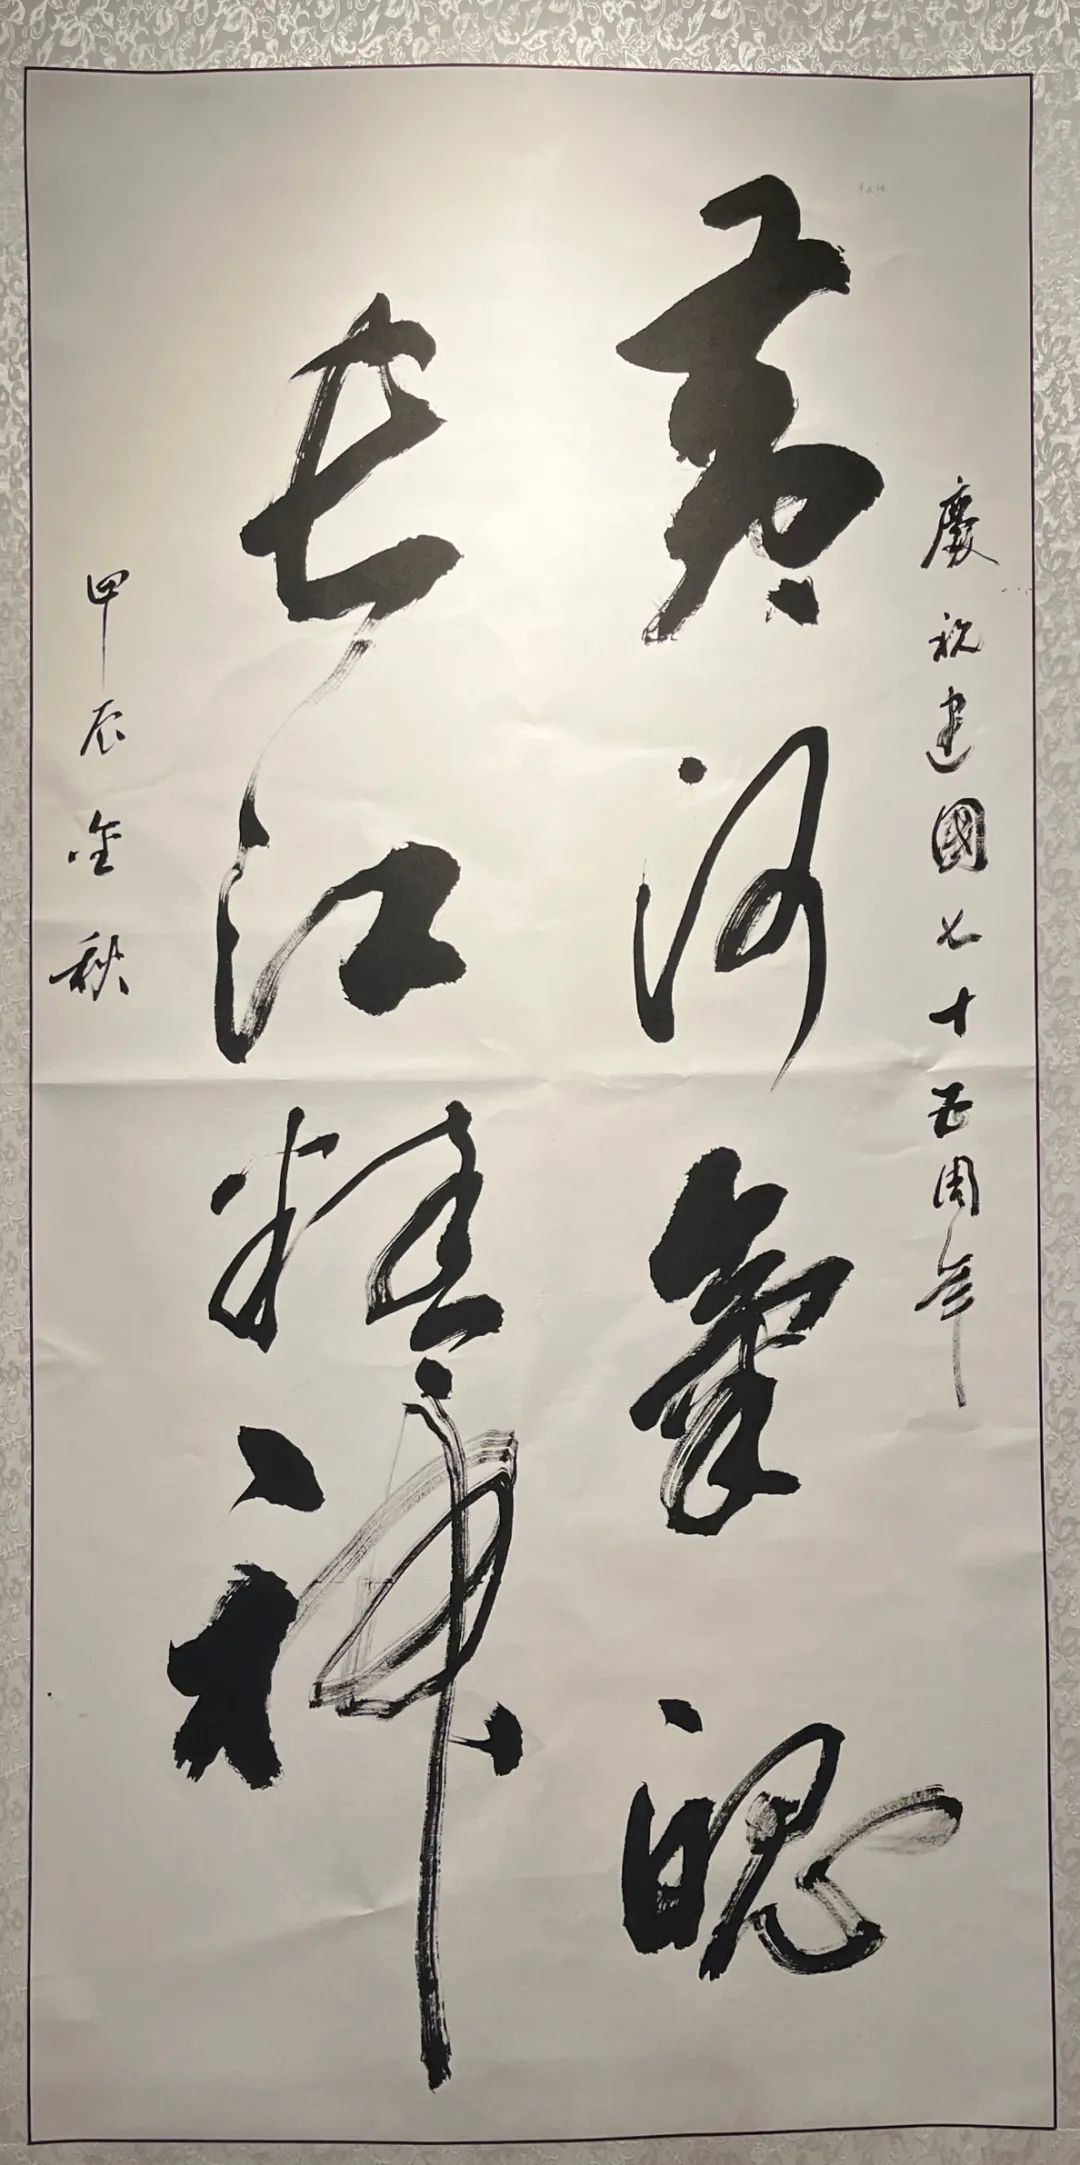 慶祝建國七十五周年
黃河氣魄
長江精神
甲辰金秋